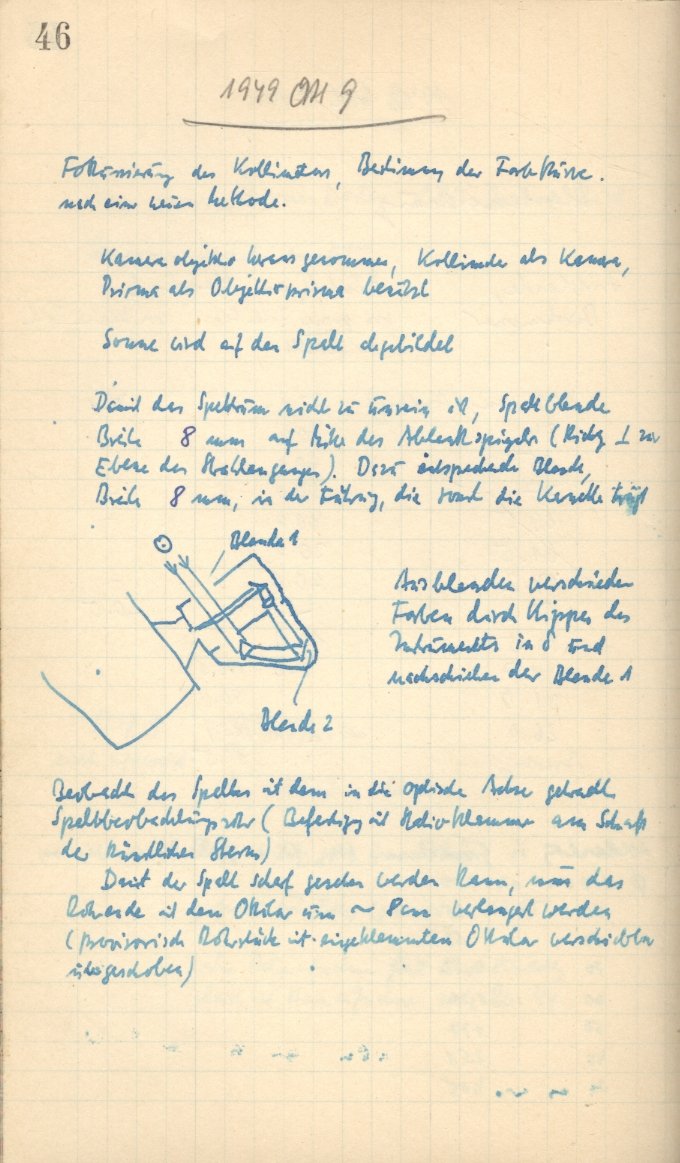 46
1949 Okt 9
Fokussierung des Kollimators, Bestimmung der Farbkurve.
nach einer neuen Methode.
Kameraobjektiv herausgenommen, Kollimator als Kamera,
Prisma als Objektivprisma benützt
Sonne wird auf den Spalt abgebildet
Damit das Spektrum nicht zu unrein ist, Spaltblende
Breite 8 mm auf Mitte des Ablenkspiegels (Richtg ⊥ zur
Ebene des Strahlenganges). Dazu entsprechende Blende,
Breite 8 mm, in der Führung, die sonst die Kassette trägt
Blende 1
Ausblenden verschieden
Farben durch Kippen des
Instruments in δ und
nachschieben der Blende 1
Blende 2
Beobacht des Spaltes mit dem in die optische Achse gebracht
Spaltbeobachtungsrohr (Befestigg mit Stativklammer am Schaft
der künstlichen Sterns)
Damit der Spalt scharf gesehen werden kann, muss das
Rohrende mit dem Okular um ~ 8 cm verlängert werden
(provisorisch Rohrstück mit eingeklemmten Okular verschiebbar
übergeschoben)